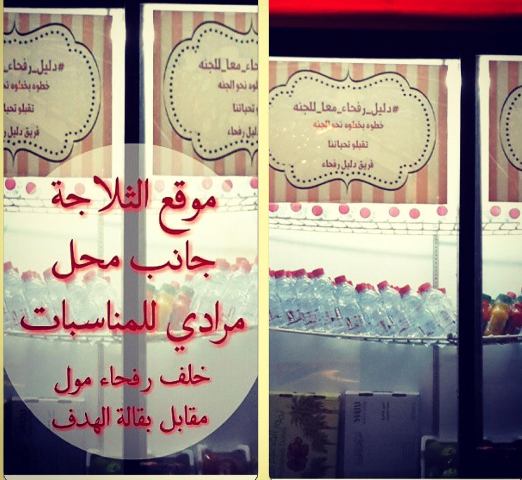 #دليل_رفحاء_معا_للجنه
خطوه بخطوه نحو الجنه
تقبلو تحياتنا
فريق دليل رفحاء
موقع الثلاجة
جانب محل
مرادي للمناسبات
خلف رفحاء مول
مقابل بقالة الهدف
#دليل_رفحاء_معا_للجنه
خطوه بخطوه نحو الجنه
تقبلو تحياتنا
فريق دليل رفحاء